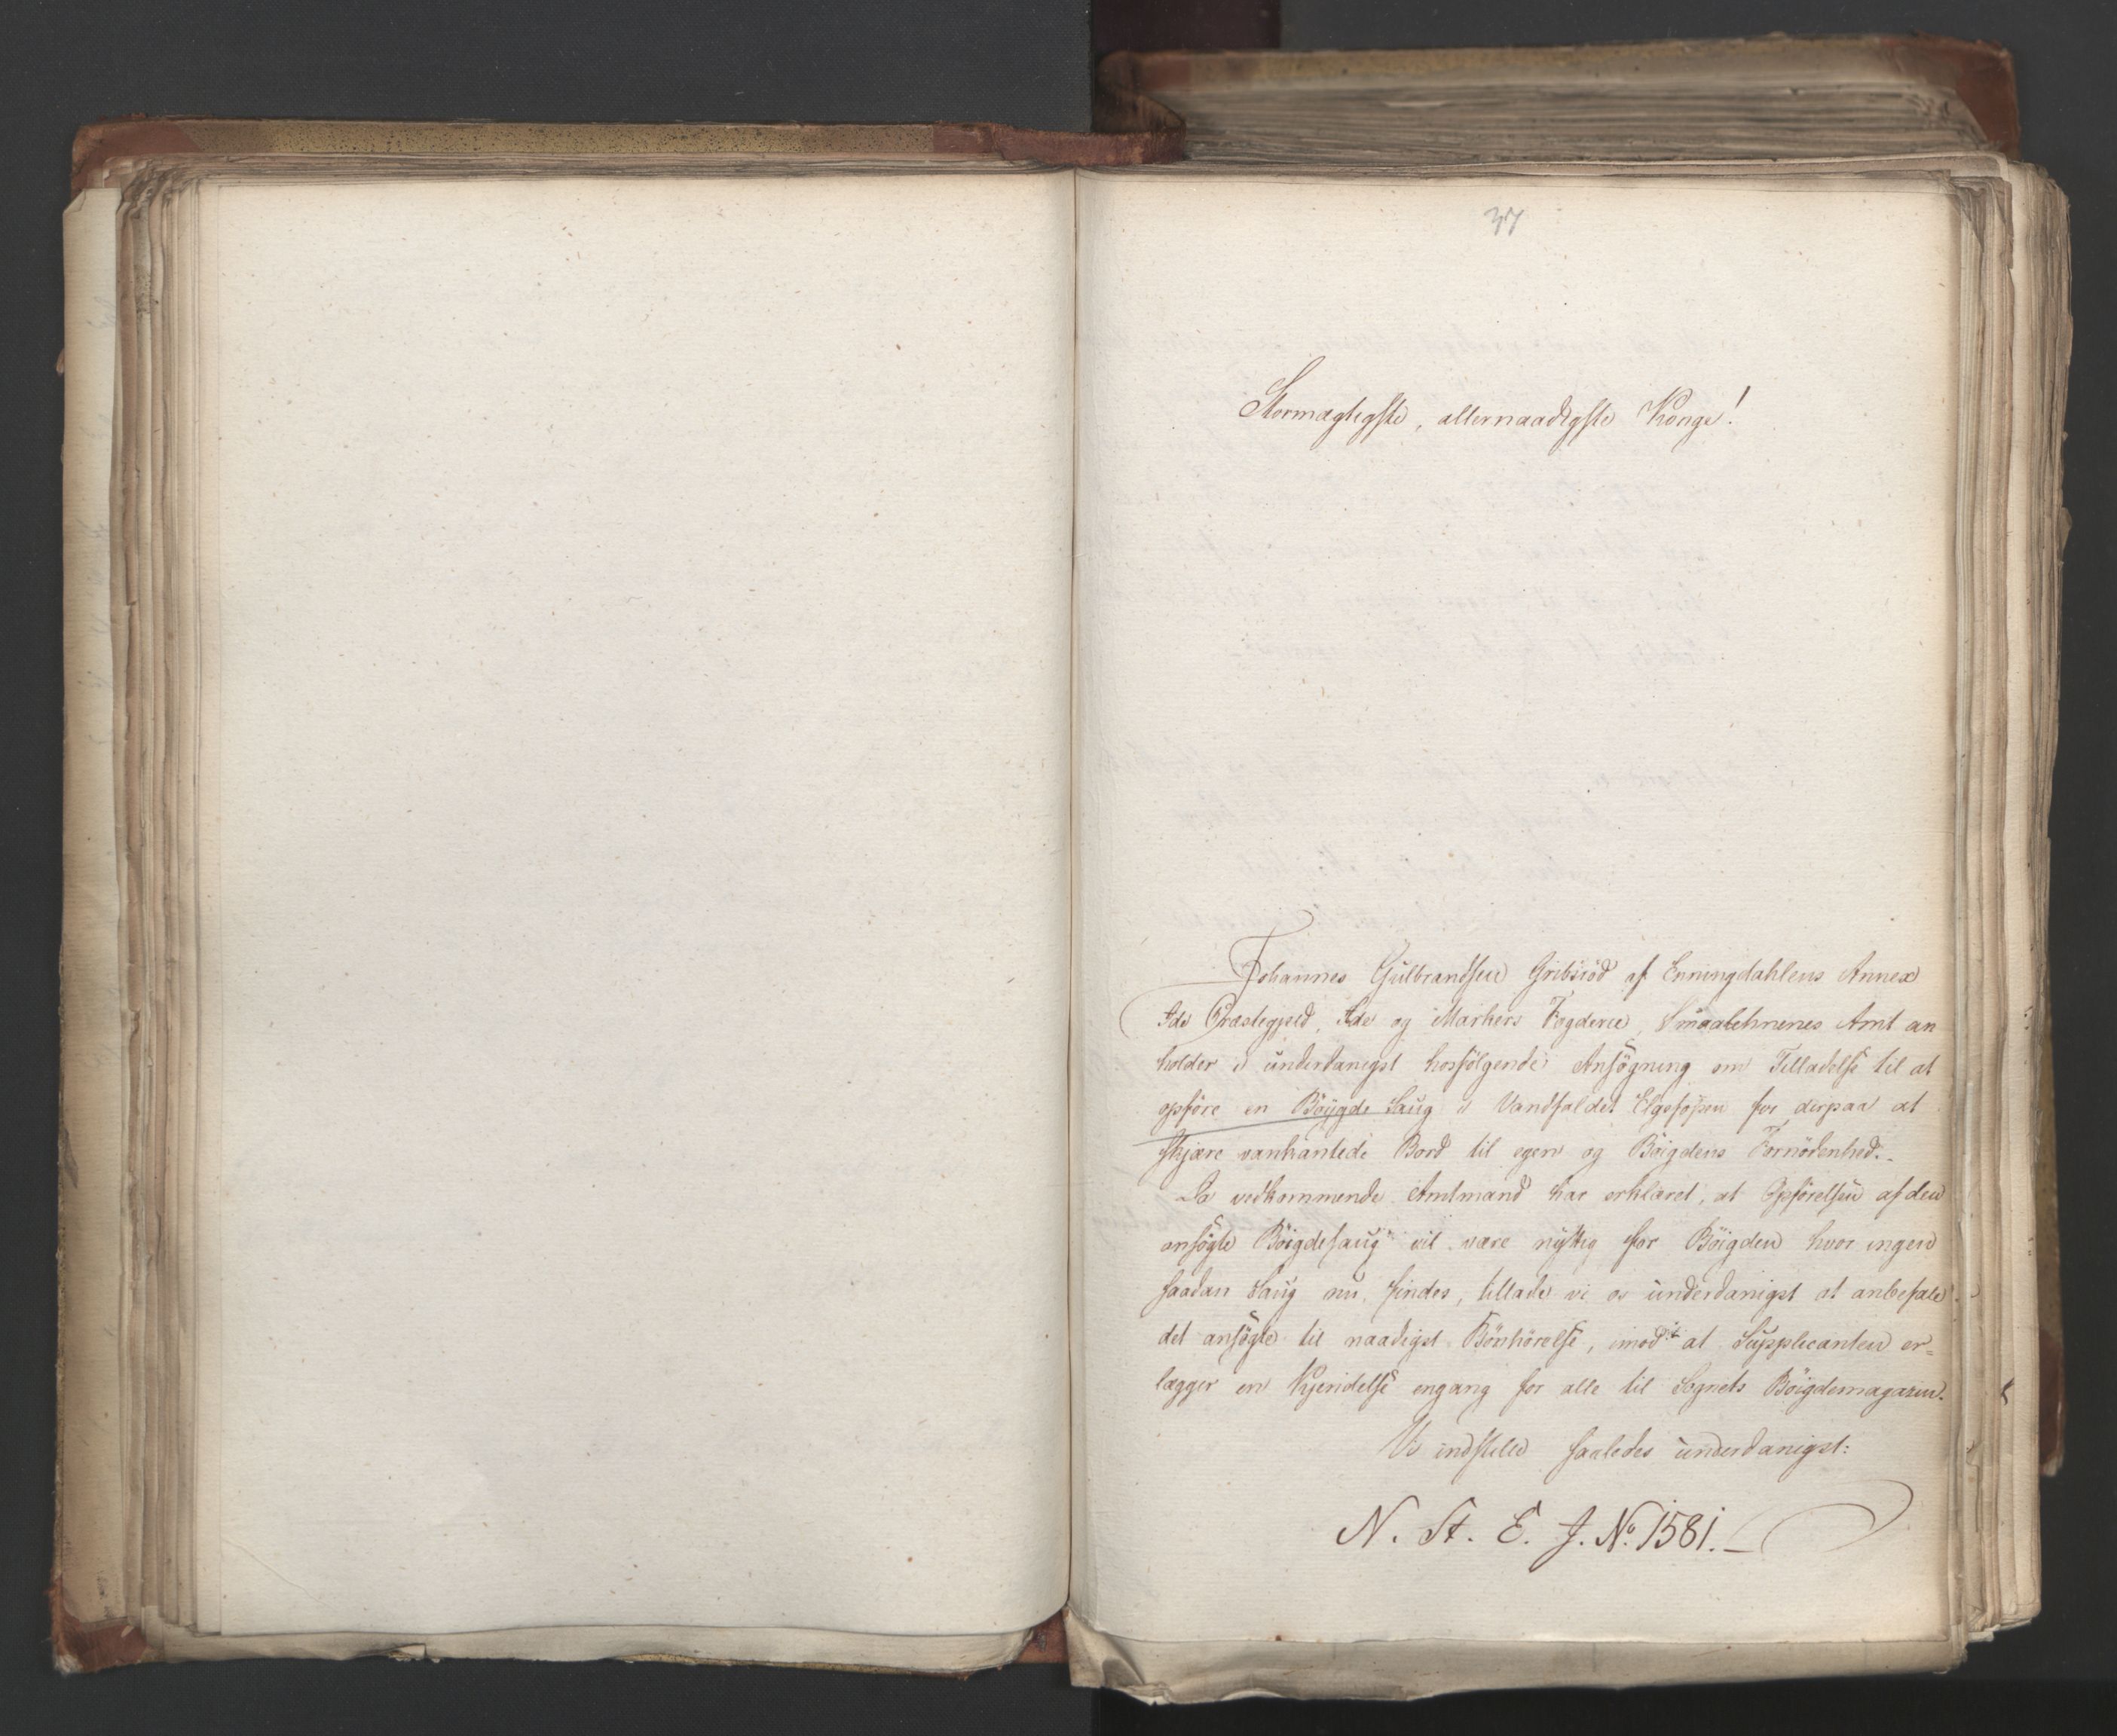 37
Stormægtigste, allernaadigste Konge!
Johannes Gulbrandsen Gribsröd af Enningdahlens Annex
Ids Præstegjeld, Ide og Markers Fogderie, Smaalehnenes Amt an
holder i underdanigst hosfölgende Ansögning om Tilladelse til at
opföre en Böygde Saug i Vandfaldet Elgefossen for derpaa at
skjære vanhantede Bord til egen og Böigdens Fornödenhed.
Da vedkommende Amtmand har erklæret, at Opförelsen af den
ansögte Böigdesaug vil være nyttig for Böigden hvor ingen
saadan Saug nu findes, tillade vi os underdanigst at anbefale
det ansögte til naadigst Bönhörelse, imod at Supplicanten er=
lægger en Kjendelse engang for alle til Sognets Böigdemagazin.
Vi indstille saaledes underdanigst:
N. St. E. J. No. 1581. –